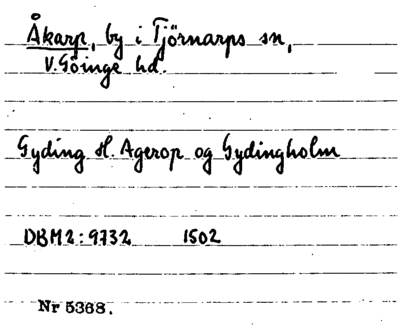 Åkarp, by i Tjörnarps sn,
V. Göinge hd.
Gyding H. Agerop og Gydingholm
DBM2:9732 1502
Nr 5368.